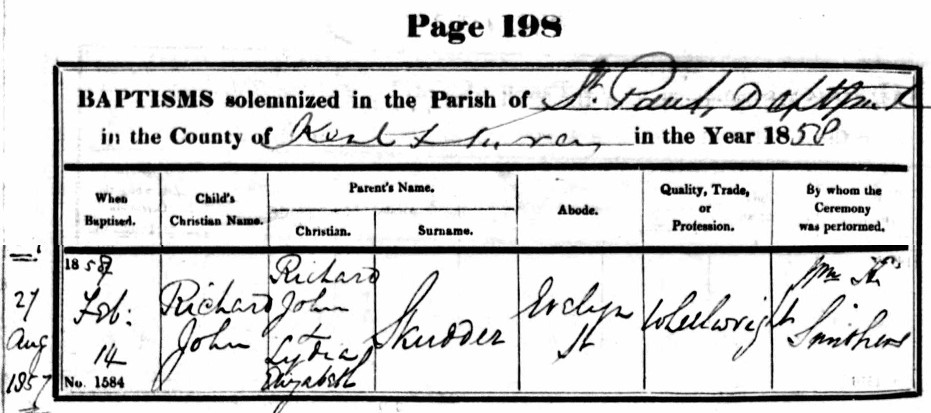 Page 198
BAPTISMS solemnized in the Parish of St. Paul, Deptford
in the County of Kent & Surrey in the Year 1858
When Baptised.
Child's Christian Name.
Parent's Name.
Christian.
Surname.
Abode.
Quality, Trade, or Profession.
By whom the Ceremony was performed.
27
Aug
1857
1858
Feb:
14
No. 1584
Richard
John
Richard
John
Lydia
Elizabeth
Skudder
Evelyn
St
Wheelwright
Wm